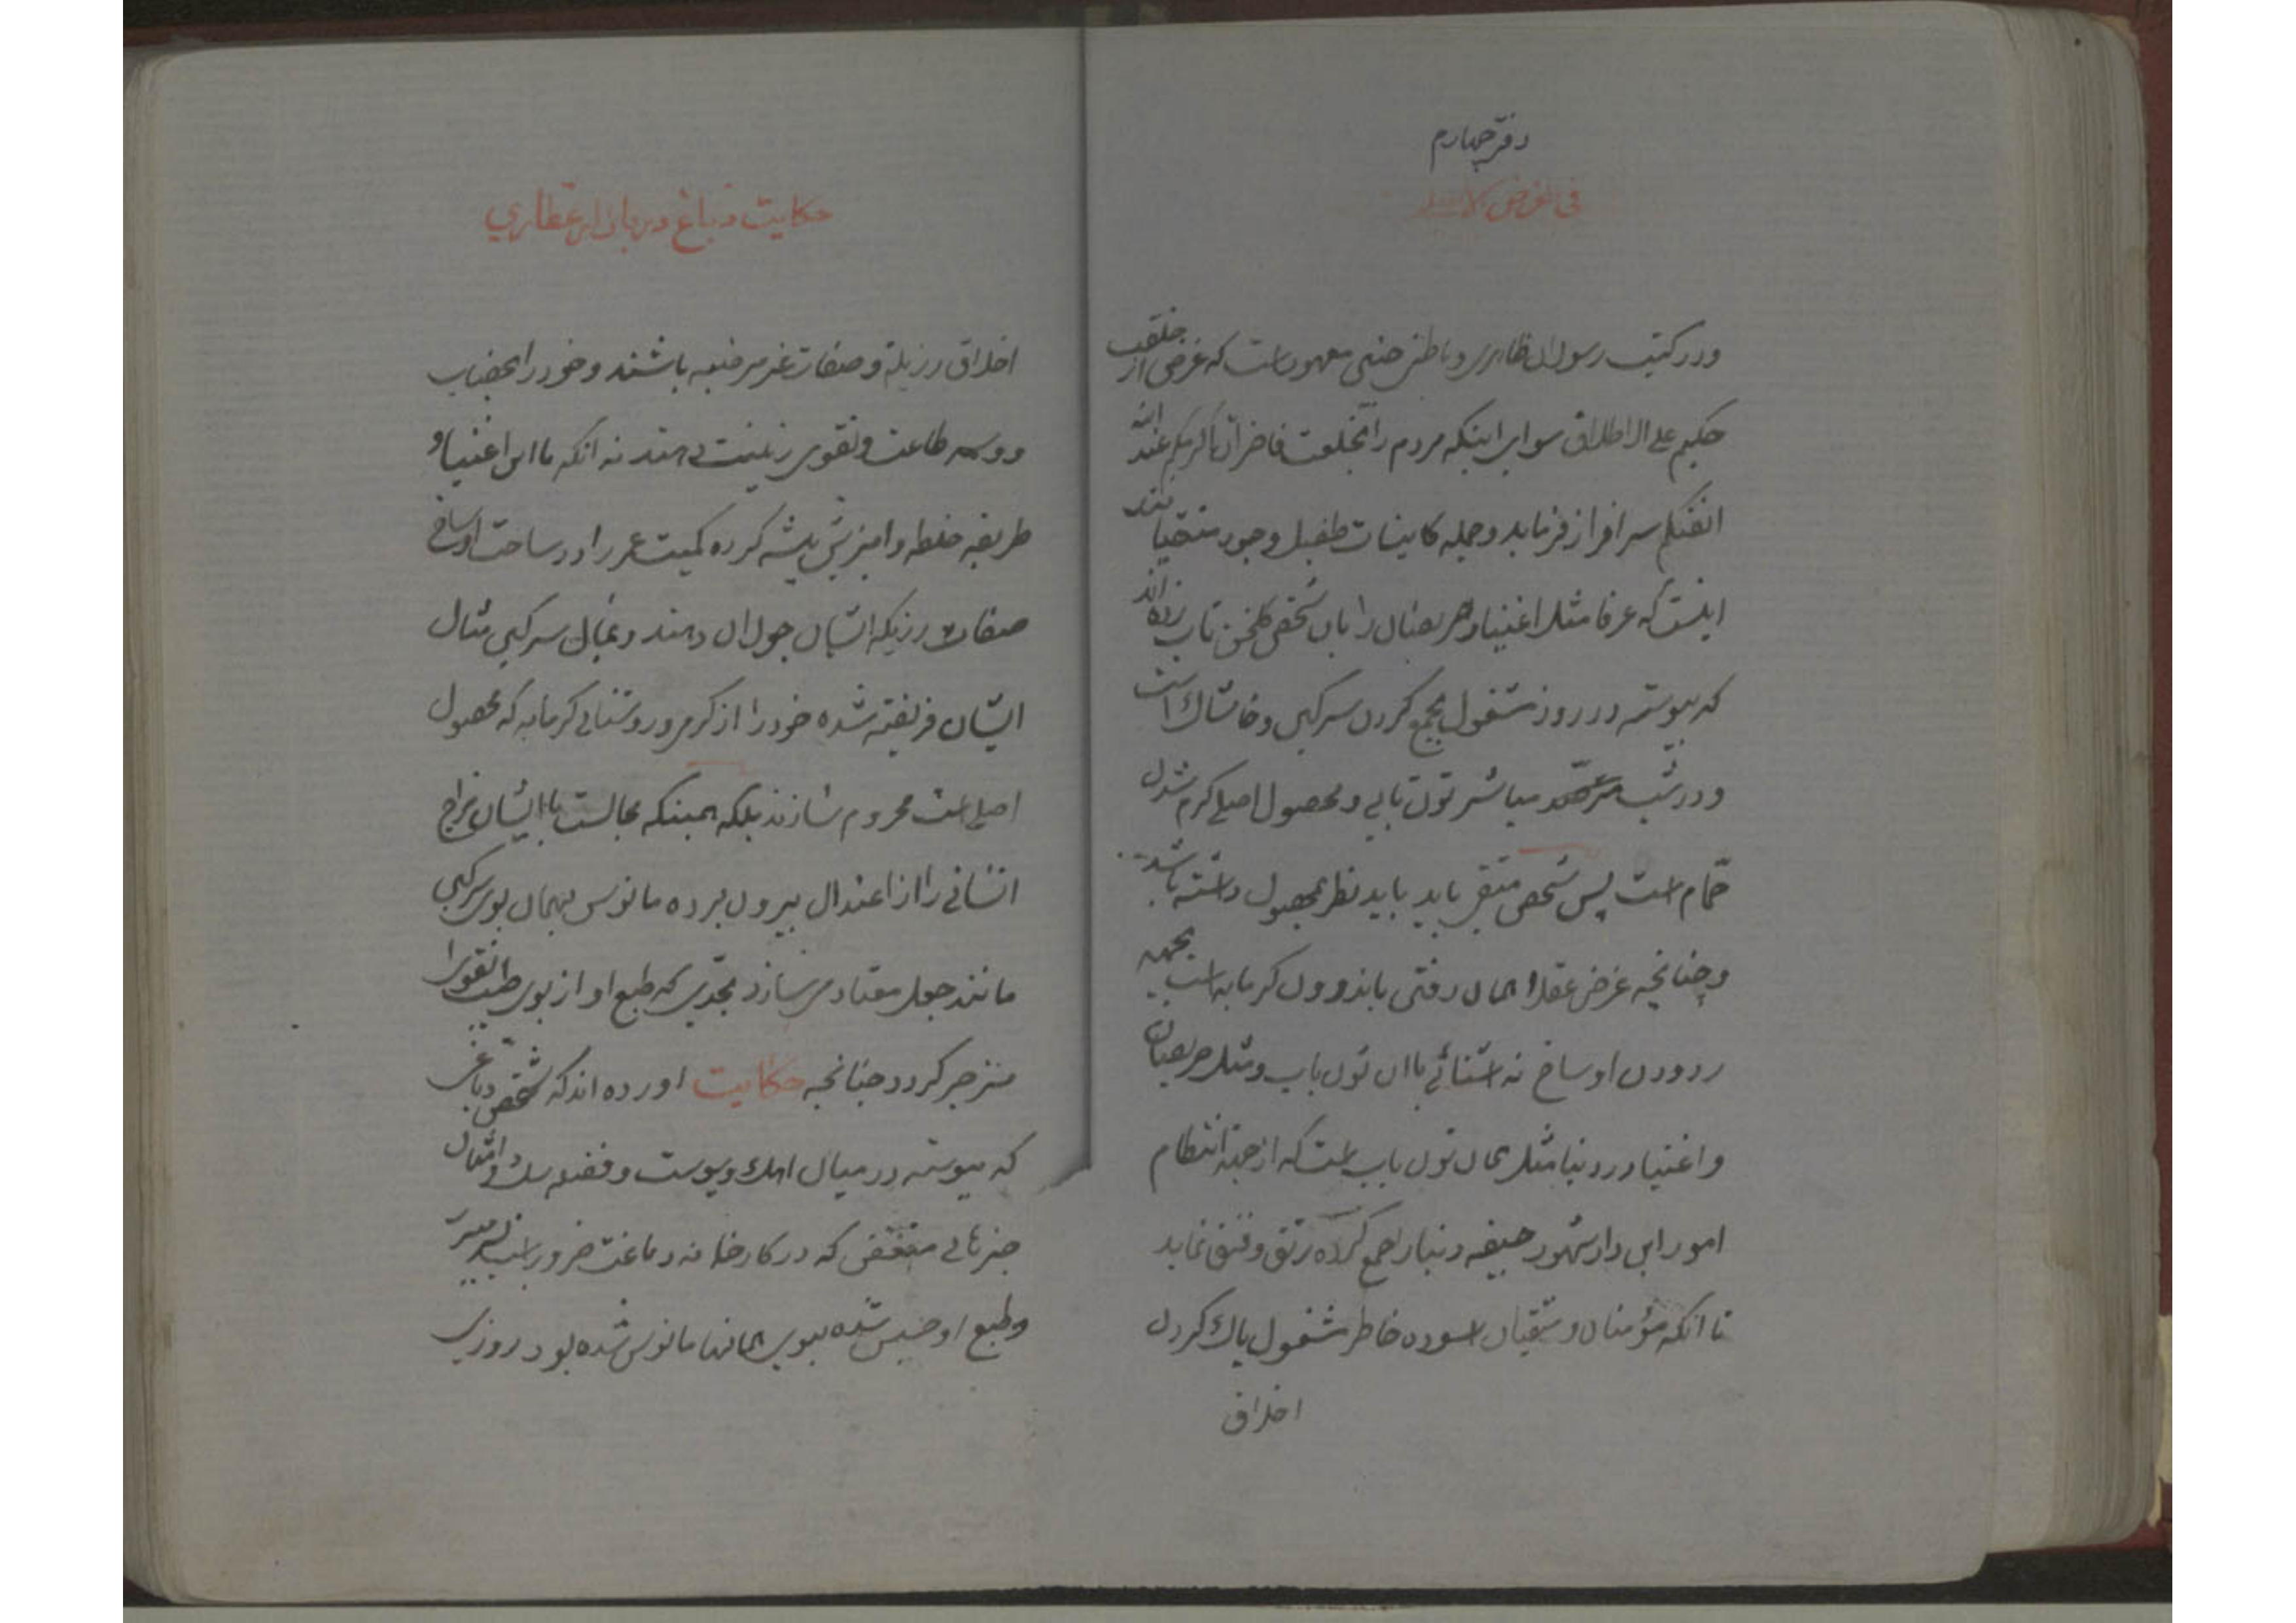 دفتر چهارم
و در کتب رسولان ظاهری و باطنی چنین معهود است که غرض از خلقت
حکیم علی الاطلاق سوای اینکه مردم را بخلعت فاخر ان اکرمکم عند الله
اتقیکم سرافراز فرماید و جمله کاینات طفیل وجود متقیانند
اینست که عرفا مثل اغنیا و حریصان را بان شخص گلخن تاب زده اند
که پیوسته در روز مشغول بجمع کردن سرکین و خاشاک است
و در شب مباشر تون تابی و محصول اصلی کرم شدن
حمّام است پس شخص متقی باید باید نظر بمحصول داشته باشد
و چنانچه غرض عقلا همان رفتن باندرون کرمابه است بجهه
زدودن اوساخ نه اشنائی باان تون تاب و مثل حریصان
و اغنیا در دنیا مثل همان تون تاب است که از جهة انتظام
امور این دار شهود جیفه دنیا را جمع کرده رتق و فتق نماید
تا انکه مؤمنان و متقیان اسوده خاطر مشغول پاک کردن
اخلاق
حکایت دباغ در بازار عطاری
اخلاق رزیله و صفات غیر مرضیه باشند و خود را بخضاب
و وسمه طاعت و تقوی زینت دهند نه انکه با این اغنیا و
طریقه خلطه و امیزش پیشه کرده کمیت عمر را در ساحت اوساخ
صفات رزیله ایشان جولان دهند و بمال سرکین مثال
ایشان فریفته شده خود را از کرمی و روشنائی کرمابه که محصول
اصلی است محروم سازند بلکه همینکه مجالست با ایشان مزاج
انسانی را از اعتدال بیرون برده مانوس بهمان بوی سرکین
مانند جعل معتاد می سازد بحدّی که طبع او از بوی طیب تقوی
منزجر کردد چنانچه حکایت اورده اند که شخص دباغی
که پیوسته در میان اهک و پوست و فضله سک و امثال
چیزهای متعفن که در کارخانه دباغت ضرور است
و طبع او خسیس شده ببوی همانها مانوس شده بود روزی